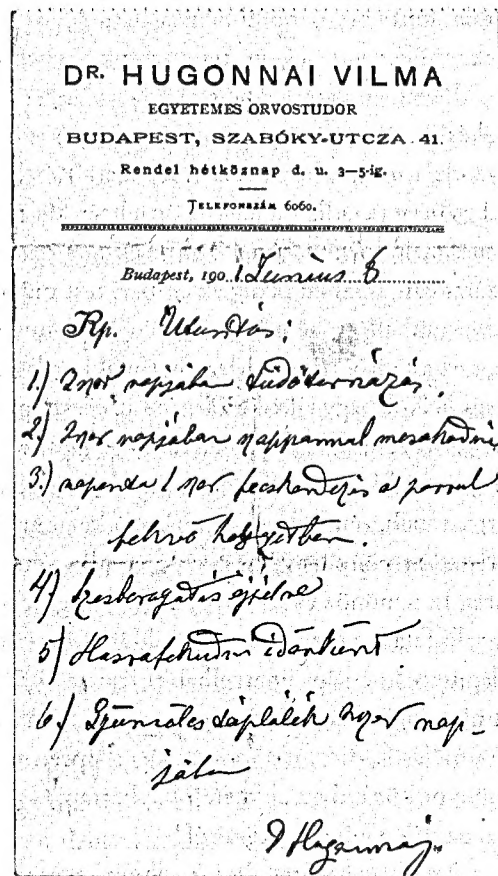 DR. HUGONNAI VILMA
EGYETEMES ORVOSTUDOR
BUDAPEST, SZABÓKY-UTCZA 41.
Rendel hétköznap d. u. 3—5-ig.
TELEFONSZÁM 6060.
Budapest, 190 1 Junius 6
Rp. Utasitás:
1.) 2szor napjában tüdőtornázás.
2.) 2szor napjában szappannal mosakodni
3.) naponta 1 szor fecskendezés a porral
fekvő helyzetben.
4) beragatás éjjelre
5) Hasrafeküdni időnként.
6.) táplálék napjában